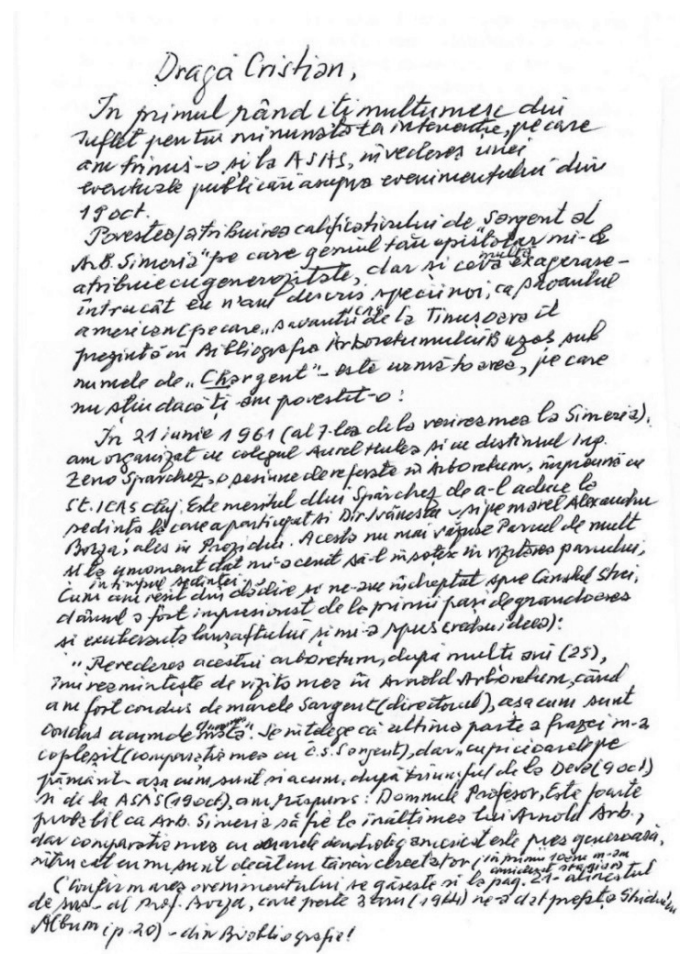 Dragă Cristian,
In primul rând iți multumesc din
suflet pentru minunata ta intervenție, pe care
am trimis-o si la ASAS, in vederea unei
eventuale publicări asupra evenimentului din
19 oct.
Povestea atribuirea calificativului de "Sargent al
Arb. Simeria" pe care geniul tău epistolar mi-l
atribuie cu generozitate, dar si ceva multă exagerare-
întrucât eu n-am descris specii noi, ca savantul
american (pe care "savantul" de la Timisoara îl
prezintă in Bibliografia Arboretumului Bazoș sub
numele de "Chargent" - este următoarea, pe care
nu știu dacă ti-am povestit-o:
În 21 iunie 1961 (al 7-lea de la venirea mea la Simeria),
am organizat cu colegul Aurel Hulea si cu distinsul Ing.
Zeno Spârchez, o sesiune de referate in Arboretum, împreună cu
St. ICAS Cluj. Este meritul dlui Spârchez de a-l aduce la
sedinta la care a participat si Dir. Ivănescu - si pe marel Alexandru
Borza, ales in Prezidiu. Acesta nu mai văzuse Parcul de mult
si la un moment dat mi-a cerut să-l insotesc in vizitarea parcului,
in timpul sedinței
Cum am iesit din clădire si ne-am îndreptat spre Canalul Strei,
dânsul a fost impresionat de la primii pasi de grandoarea
si exuberanta landsaftului si mi-a spus (redau ideea):
"Revederea acestui arboretum, după multi ani (25),
îmi reaminteste de vizita mea in Arnold Arboretum, când
am fost condus de marele Sargent (directorul), asa cum sunt
condus acum de dvoastră". Se intelege că ultima parte a frazei m-a
coplesit (comparatia mea cu C.S. Sargent), dar "cu picioarele pe
pământ" asa cum sunt si acum, după triumful de la Deva (9 oct)
si de la ASAS (19 oct), am răspuns: Domnule Profesor, Este foarte
probabil ca Arb. Simeria să fie la inăltimea lui Arnold Arb.,
dar comparatia mea cu marele dendrolog american este prea generoasă,
intrucât eu nu sunt decât un tânăr cercetator, in primii 10 ani m-am
Confirmarea evenimentului se găseste si la pag. 21-
de sus - al Prof. Borza, care peste 3 ani (1964) ne-a dat prefata Ghidului
Album (p. 20) - din Bibliografie!